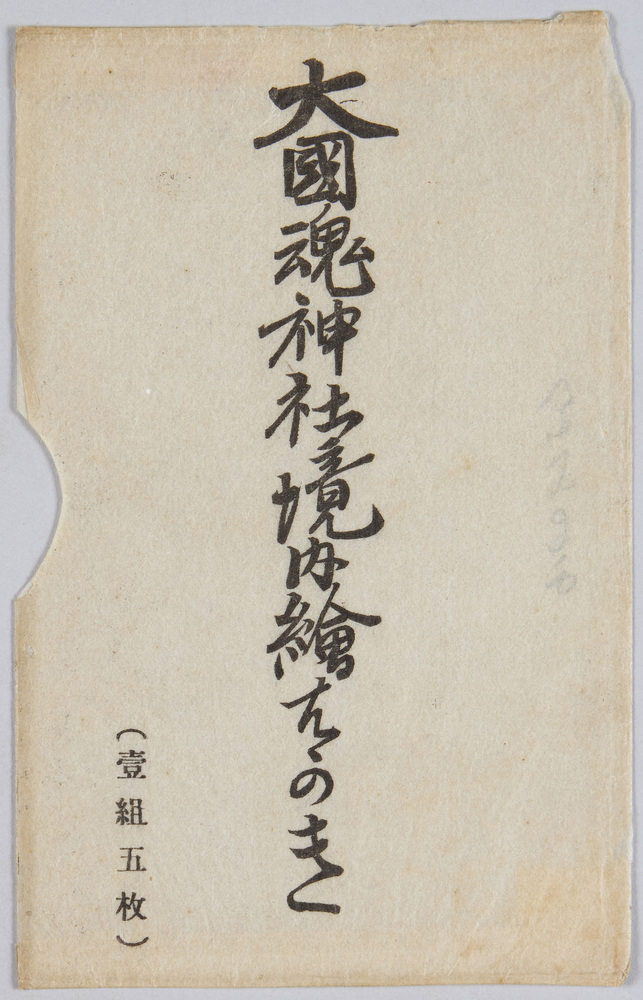 大國魂神社境内繪はかき
（壹組五枚）